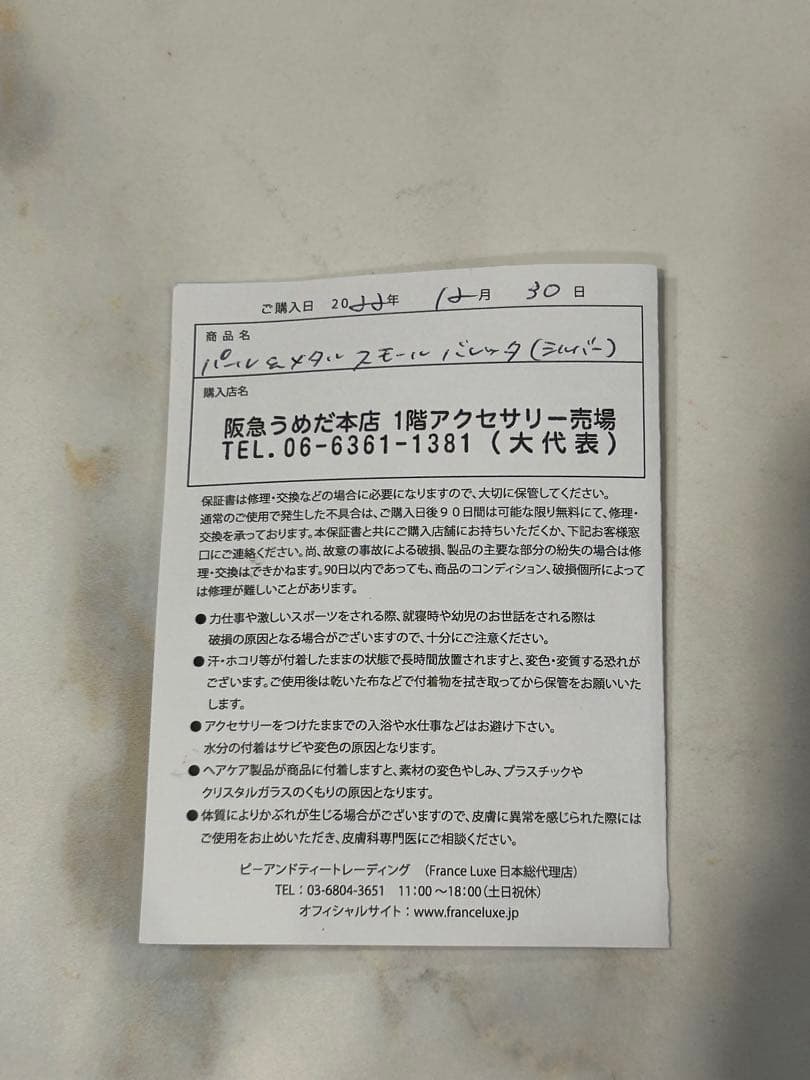 ご購入日 2022年 12月 30日
商品名
パール&メタル スモール バレッタ(シルバー)
購入店名
阪急うめだ本店 1階アクセサリー売場
TEL.06-6361-1381(大代表)
保証書は修理・交換などの場合に必要になりますので、大切に保管してください。
通常のご使用で発生した不具合は、ご購入日後90日間は可能な限り無料にて、修理・
交換を承っております。本保証書と共にご購入店舗にお持ちいただくか、下記お客様窓
口にご連絡ください。尚、故意の事故による破損、製品の主要な部分の紛失の場合は修
理・交換はできかねます。90日以内であっても、商品のコンディション、破損個所によって
は修理が難しいことがあります。
●力仕事や激しいスポーツをされる際、就寝時や幼児のお世話をされる際は
破損の原因となる場合がございますので、十分にご注意ください。
●汗・ホコリ等が付着したままの状態で長時間放置されますと、変色・変質する恐れが
ございます。ご使用後は乾いた布などで付着物を拭き取ってから保管をお願いいた
します。
●アクセサリーをつけたままでの入浴や水仕事などはお避け下さい。
水分の付着はサビや変色の原因となります。
●ヘアケア製品が商品に付着しますと、素材の変色やしみ、プラスチックや
クリスタルガラスのくもりの原因となります。
●体質によりかぶれが生じる場合がございますので、皮膚に異常を感じられた際には
ご使用をお止めいただき、皮膚科専門医にご相談ください。
ピーアンドティートレーディング (France Luxe 日本総代理店)
TEL:03-6804-3651 11:00~18:00(土日祝休)
オフィシャルサイト:www.franceluxe.jp